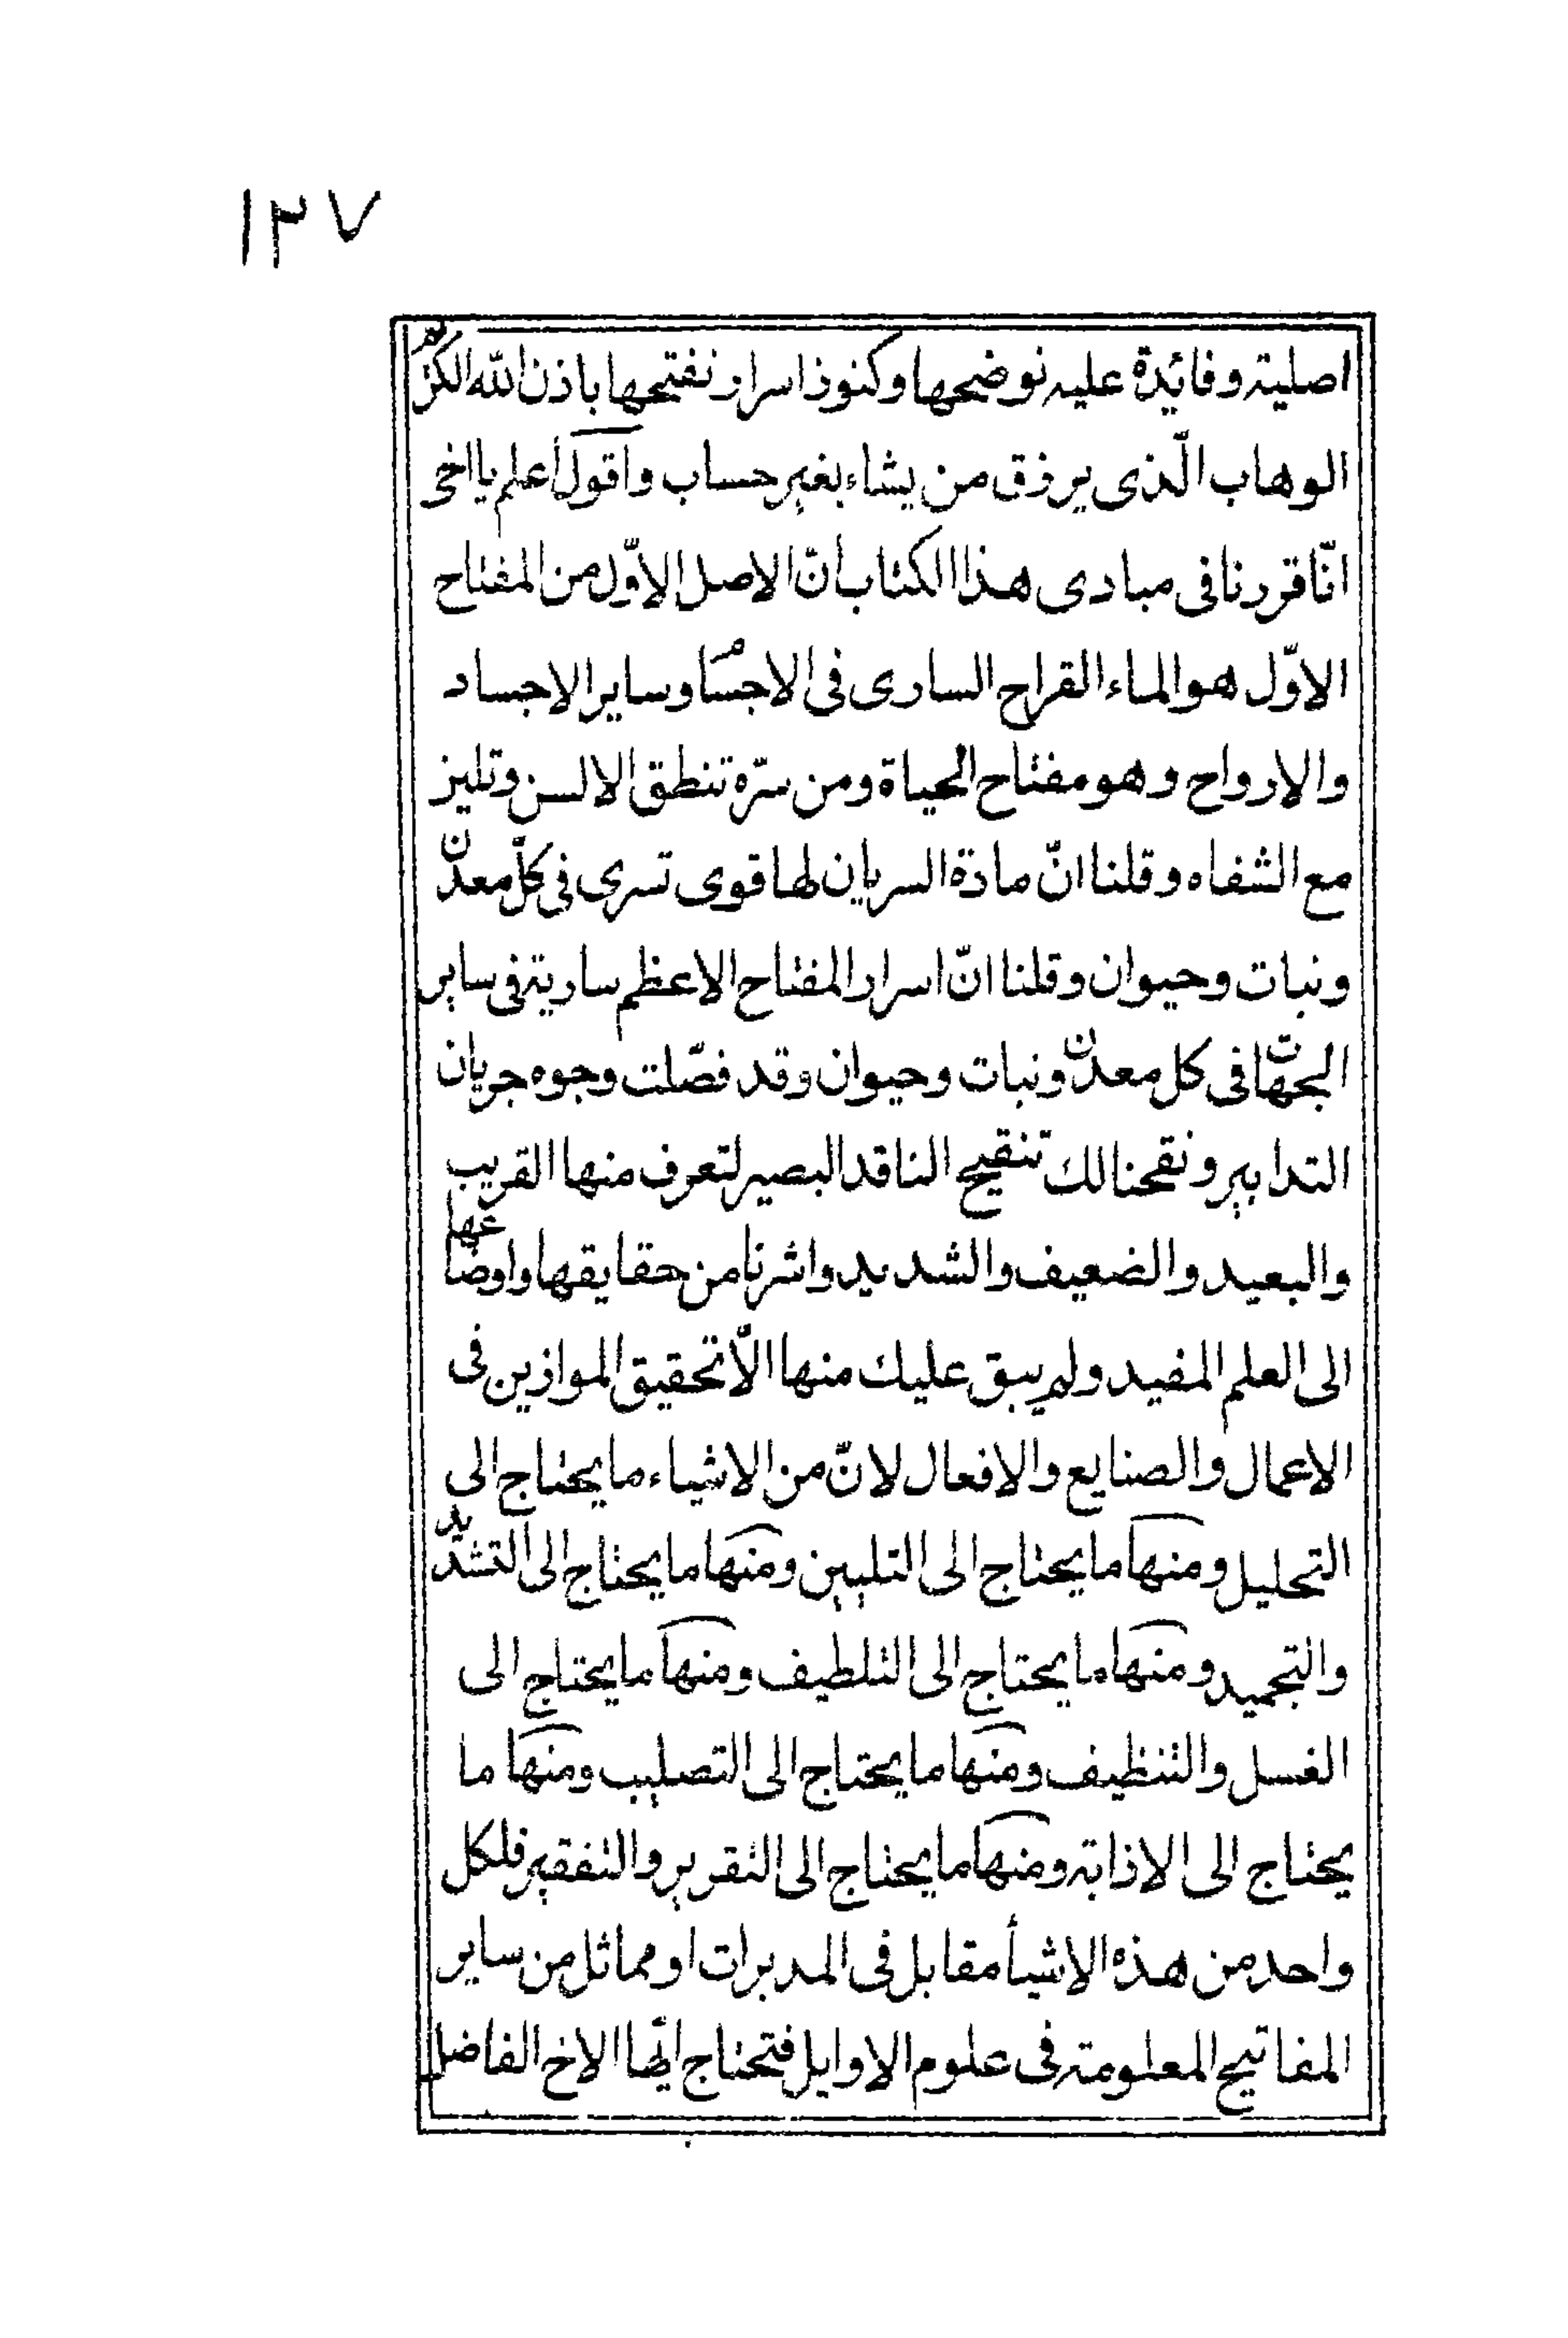 ١٢٧
اصلية وفائدة عليه نوضحها وكنوز اسرار نفتحها باذن الله الكريم
الوهاب الّذى يرزق من يشاء بغير حساب واقول اعلم يا اخى
انّا قررنا فى مبادى هذا الكتاب انّ الاصل الاوّل من المفتاح
الاوّل هو الماء القراح السارى فى الاجسام وساير الاجساد
والارواح وهو مفتاح الحياة ومن سرّه تنطق الالسن وتلين
مع الشفاه وقلنا انّ مادة السريان لها قوى تسرى فى كلّ معدن
ونبات وحيوان وقلنا انّ اسرار المفتاح الاعظم سارية فى ساير
الجهات فى كل معدن ونبات وحيوان وقد فصّلت وجوه جريان
التدابير ونقحنا لك تنقيح الناقد البصير لتعرف منها القريب
والبعيد والضعيف والشديد واشرنا من حقايقها واوضاعها
الى العلم المفيد ولم يبق عليك منها الّا تحقيق الموازين فى
الاعمال والصنايع والافعال لانّ من الاشياء ما يحتاج الى
التحليل ومنها ما يحتاج الى التليين ومنها ما يحتاج الى التشديد
والتجميد ومنها ما يحتاج الى التلطيف ومنها ما يحتاج الى
الغسل والتنظيف ومنها ما يحتاج الى التصليب ومنها ما
يحتاج الى الاذابة ومنها ما يحتاج الى التقرير والتفقير فلكل
واحد من هذه الاشيأ مقابل فى المدبرات او مماثل من ساير
المفاتيح المعلومة فى علوم الاوايل فتحتاج ايّها الاخ الفاضل